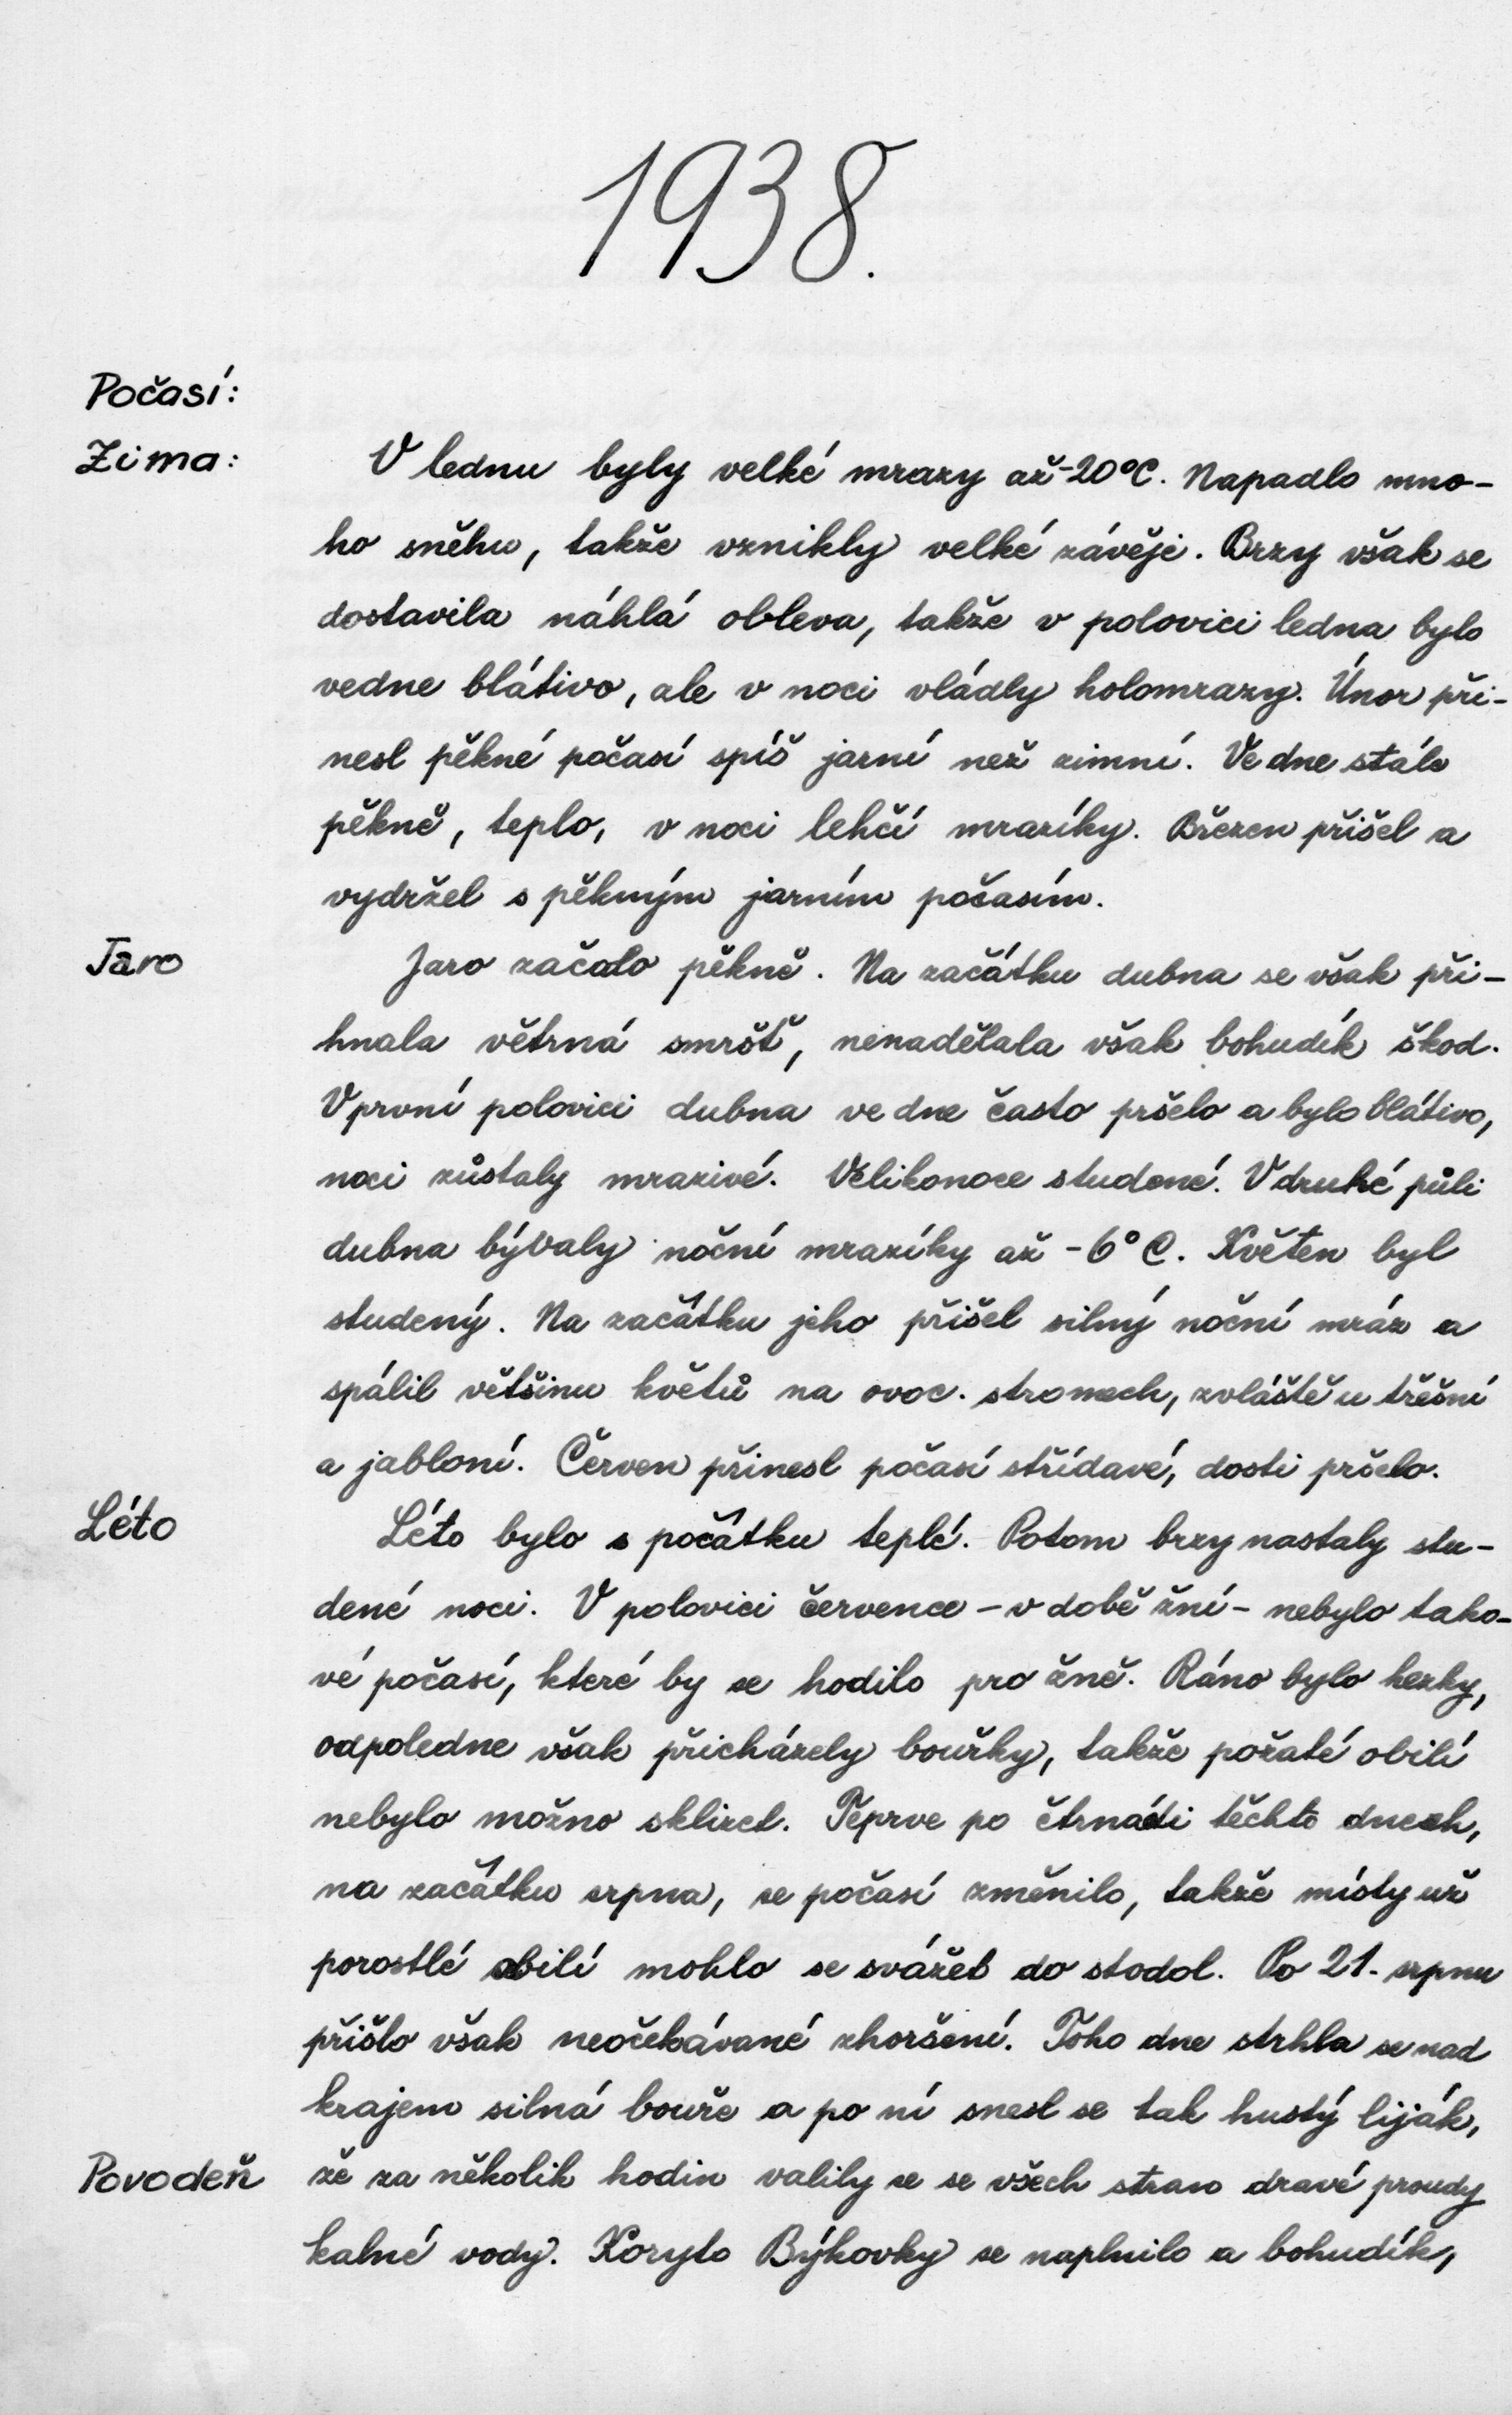 1938.
Počasí:
Zima: V lednu byly velké mrazy až -20°C. Napadlo mno-
ho sněhu, takže vznikly velké závěje. Brzy však se
dostavila náhlá obleva, takže v polovici ledna bylo
vedne blátivo, ale v noci vládly holomrazy. Únor při-
nesl pěkné počasí spíš jarní než zimní. Ve dne stále
pěkně, teplo, v noci lehčí mrazíky. Březen přišel a
vydržel s pěkným jarním počasím.
Jaro Jaro začalo pěkně. Na začátku dubna se však při-
hnala větrná smršť, nenadělala však bohudík škod.
V první polovici dubna ve dne často pršelo a bylo blátivo,
noci zůstaly mrazivé. Velikonoce studené. V druhé půli
dubna bývaly noční mrazíky až -6°C. Květen byl
studený. Na začátku jeho přišel silný noční mráz a
spálil většinu květů na ovoc. stromech, zvláště u třešní
a jabloní. Červen přinesl počasí střídavé, dosti pršelo.
Léto Léto bylo s počátku teplé. Potom brzy nastaly stu-
dené noci. V polovici července - v době žní - nebylo tako-
vé počasí, které by se hodilo pro žně. Ráno bylo hezky,
odpoledne však přicházely bouřky, takže požaté obilí
nebylo možno sklízet. Teprve po čtrnácti těchto dnech,
na začátku srpna, se počasí změnilo, takže místy už
porostlé obilí mohlo se svážet do stodol. Po 21. srpnu
přišlo však neočekávané zhoršení. Toho dne strhla se nad
krajem silná bouře a po ní snesl se tak hustý liják,
Povodeň že za několik hodin valily se se všech stran dravé proudy
kalné vody. Koryto Býkovky se naplnilo a bohudík,